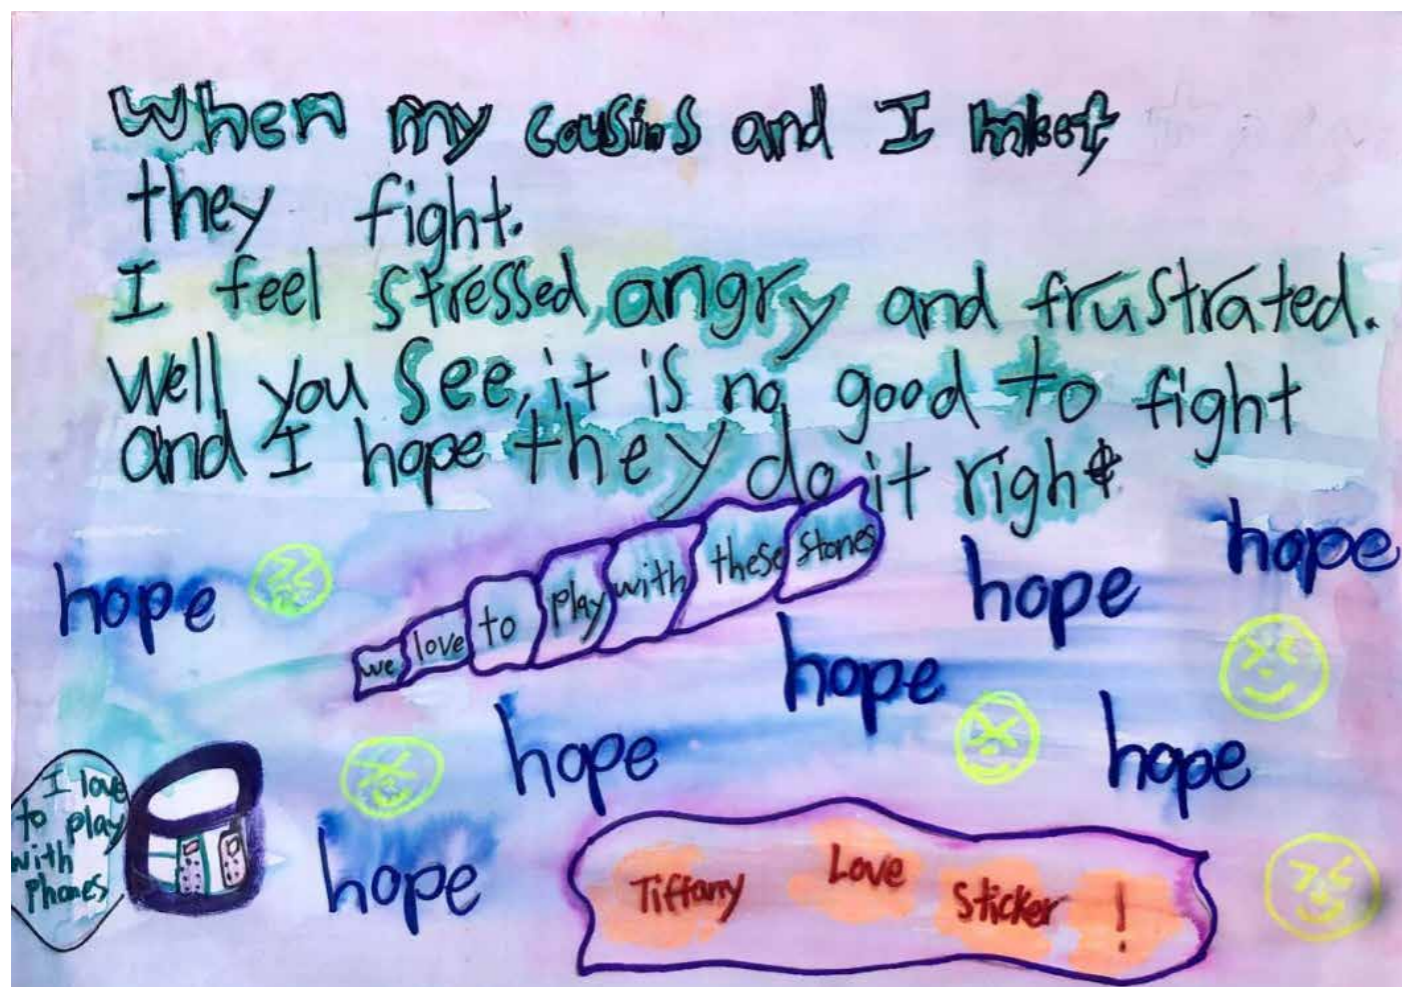 When my cousins and I meet,
they fight.
I feel stressed, angry and frustrated.
Well you see, it is no good to fight
and I hope they do it right
hope
we love to play with these stones
hope
hope
hope
hope
hope
I love
to play
with
Phones
hope
Tiffany Love Sticker !